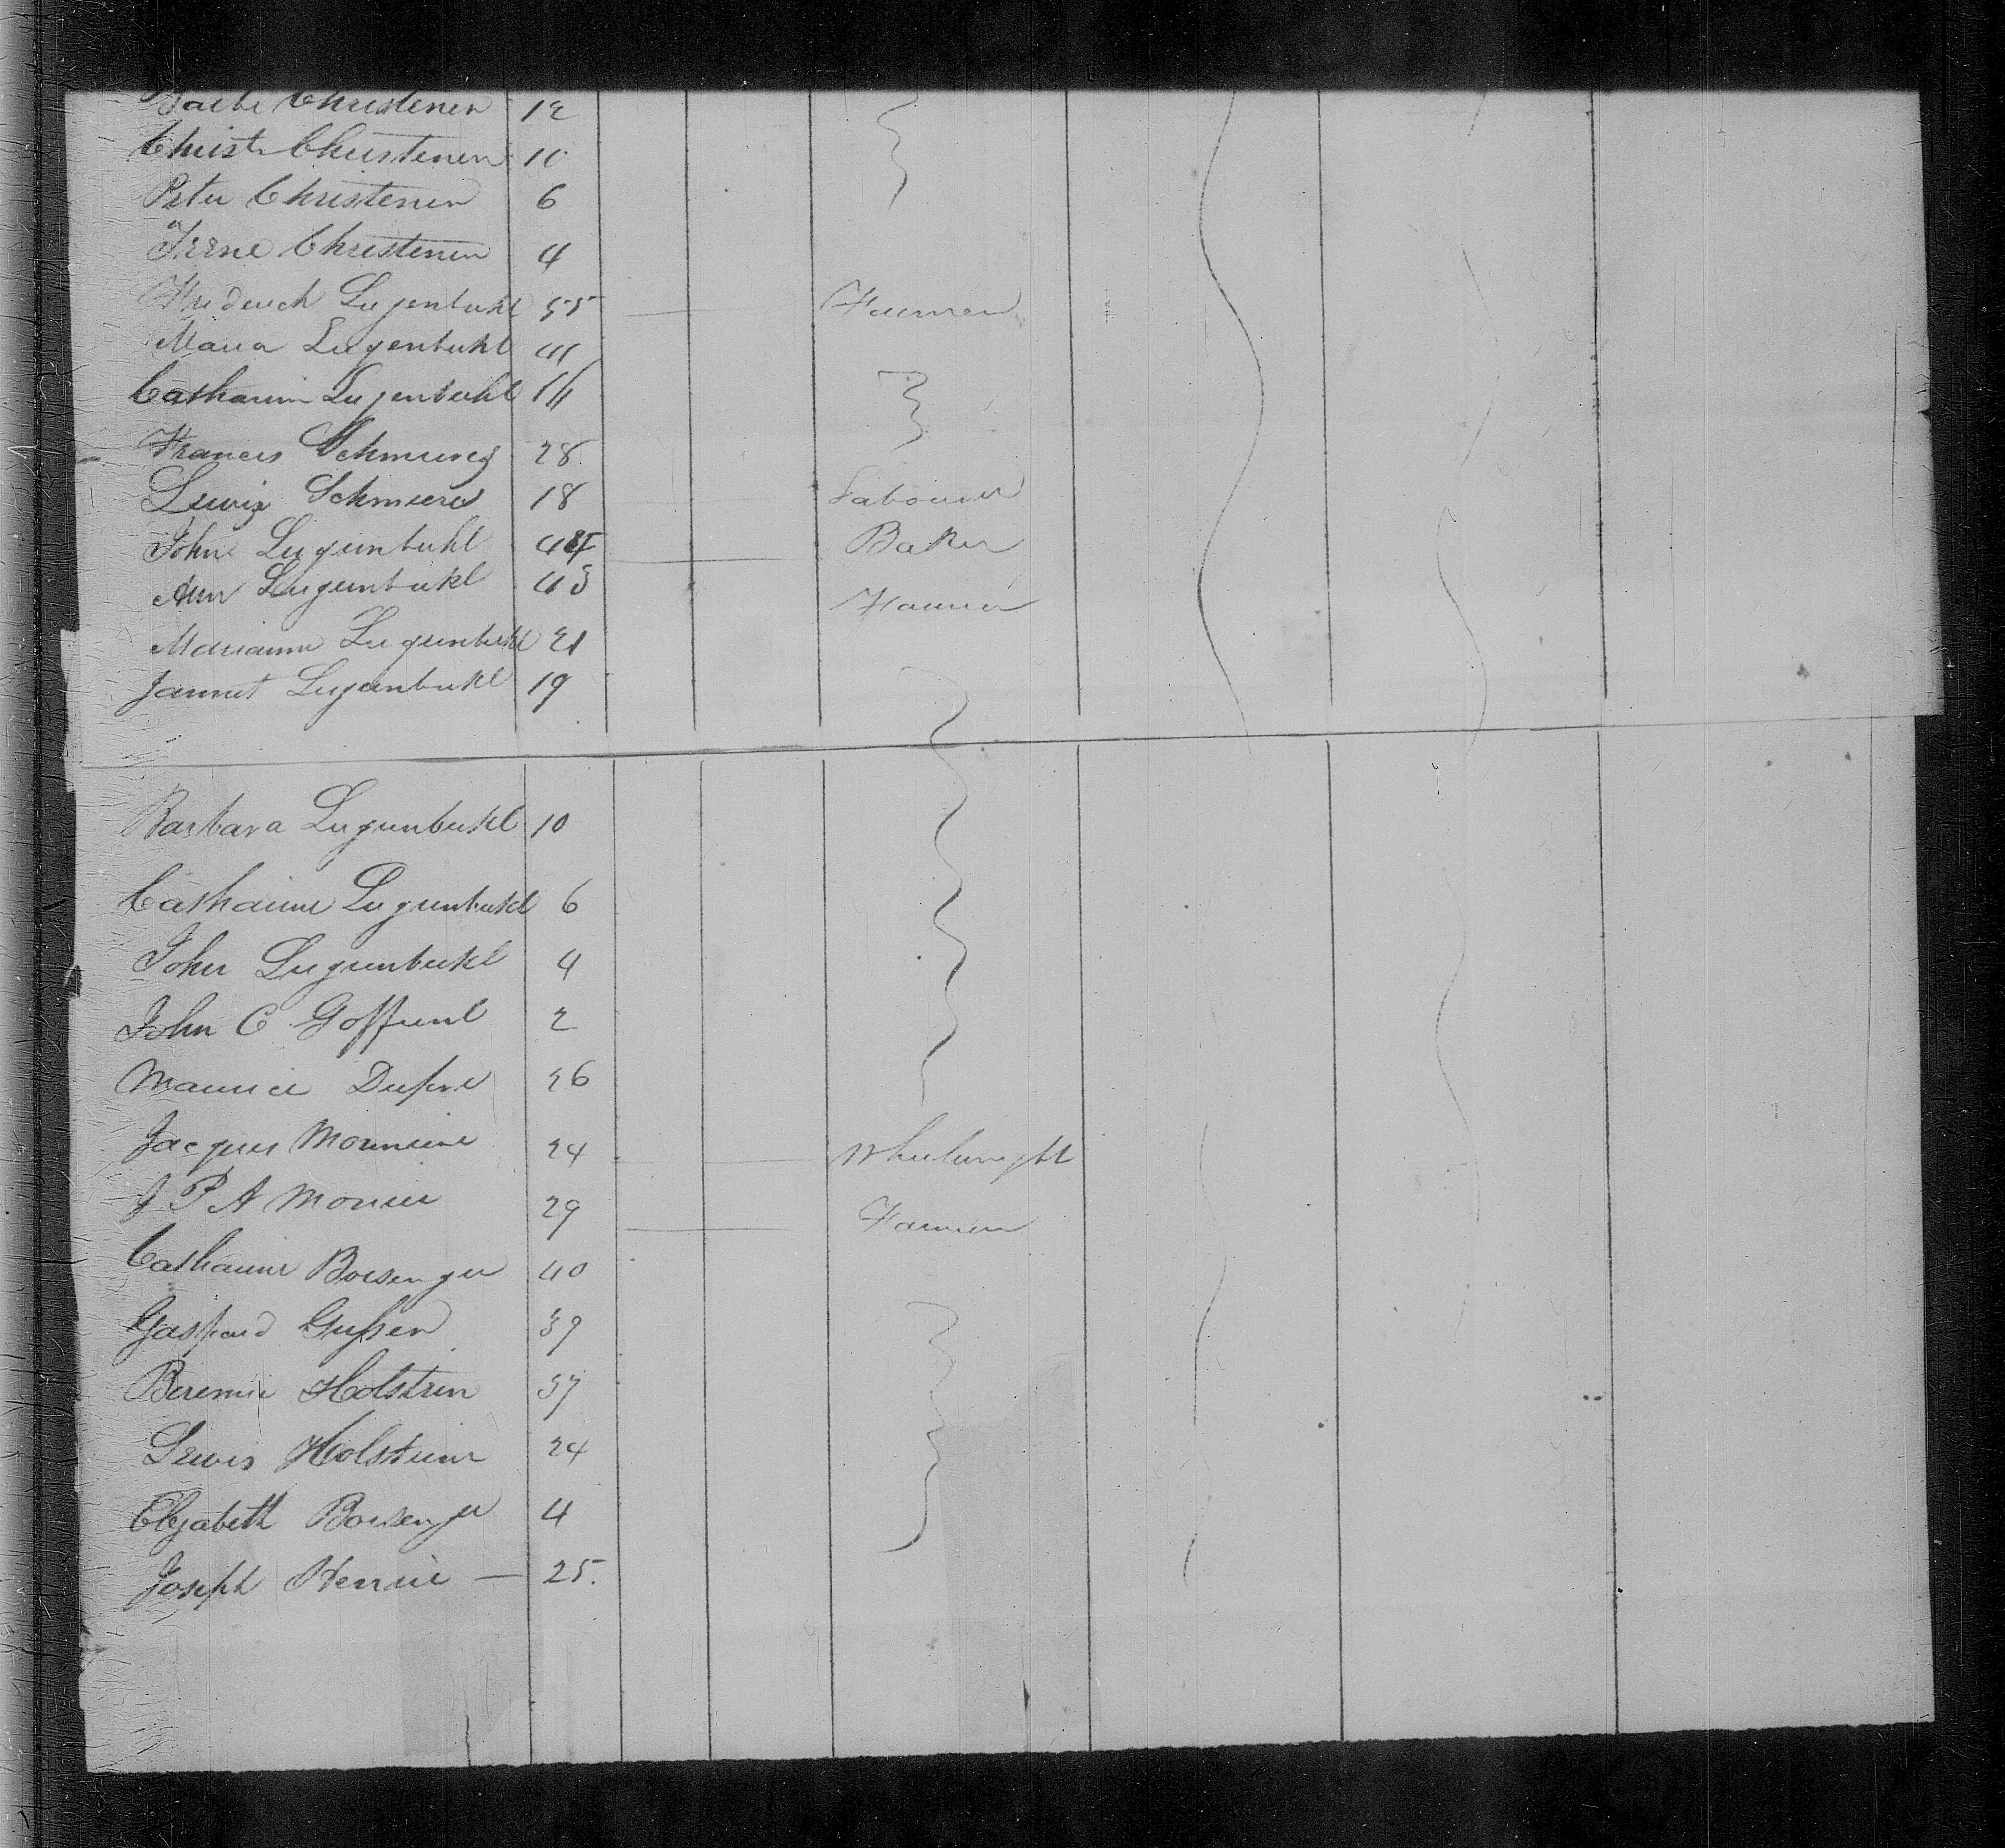 Christener 12
Christ Christener 10
Peter Christener 6
Irene Christener 4
Frederich Lugenbuhl 55 Farmer
Maria Lugenbuhl 41
Catharine Lugenbuhl 14
Francis 28
Lewis 18 Labourer
John Lugenbuhl Baker
Ann Lugenbuhl 43 Farmer
Marianne Lugenbuhl 21
Jannet Lugenbuhl 19
Barbara Lugenbuhl 10
Catharine Lugenbuhl 6
John Lugenbuhl 4
John C 2
Maurice Dupre 26
Jacques 24 Wheelwright
J P A Monier 29 Farmer
Catharine Boesenger 40
Gaspard 39
Holstein 37
Lewis Holstein 24
Elizabeth Boesenger 4
Joseph Henrie — 25.